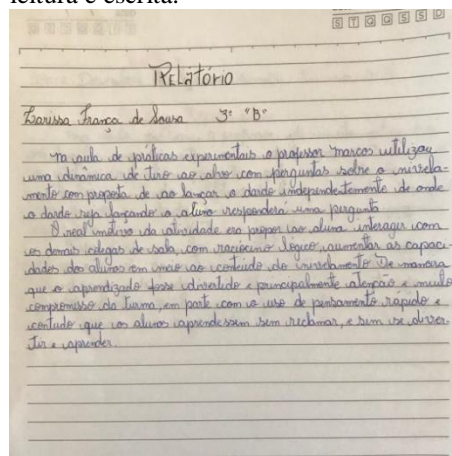 leitura e escrita.
S T Q Q S S D
RElatório
Larissa França de Sousa 3º "B"
Na aula de práticas experimentais o professor Marcos utilizou
uma dinâmica de tiro ao alvo com perguntas sobre o nivela-
mento com proposta de ao lançar o dardo independentemente de onde
o dardo seja lançando o aluno responderá uma pergunta
O real motivo da atividade era propor ao aluno interagir com
os demais colegas de sala, com raciocínio lógico, aumentar as capaci-
dades dos alunos em meio ao conteúdo do nivelamento De maneira
que o aprendizado fosse divertido e principalmente atenção e muito
compromisso da turma, em parte com o uso de pensamento rápido e
contudo que os alunos aprendessem sem reclamar, e sim se diver-
tir e aprender.